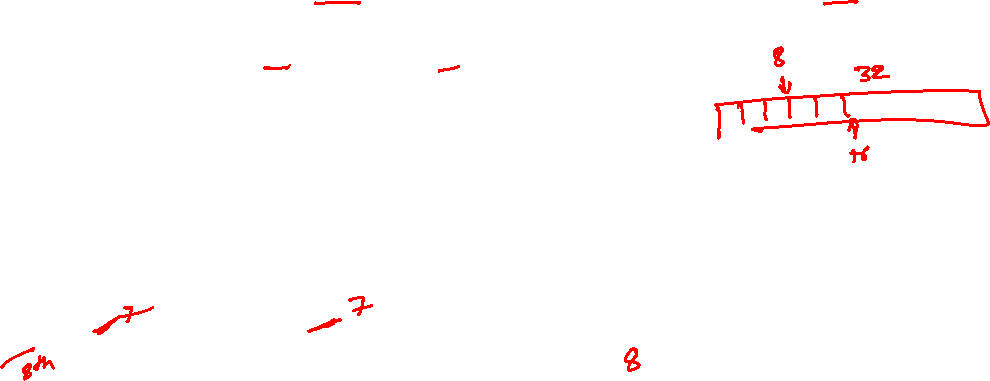 8
32
7
7
8th
8